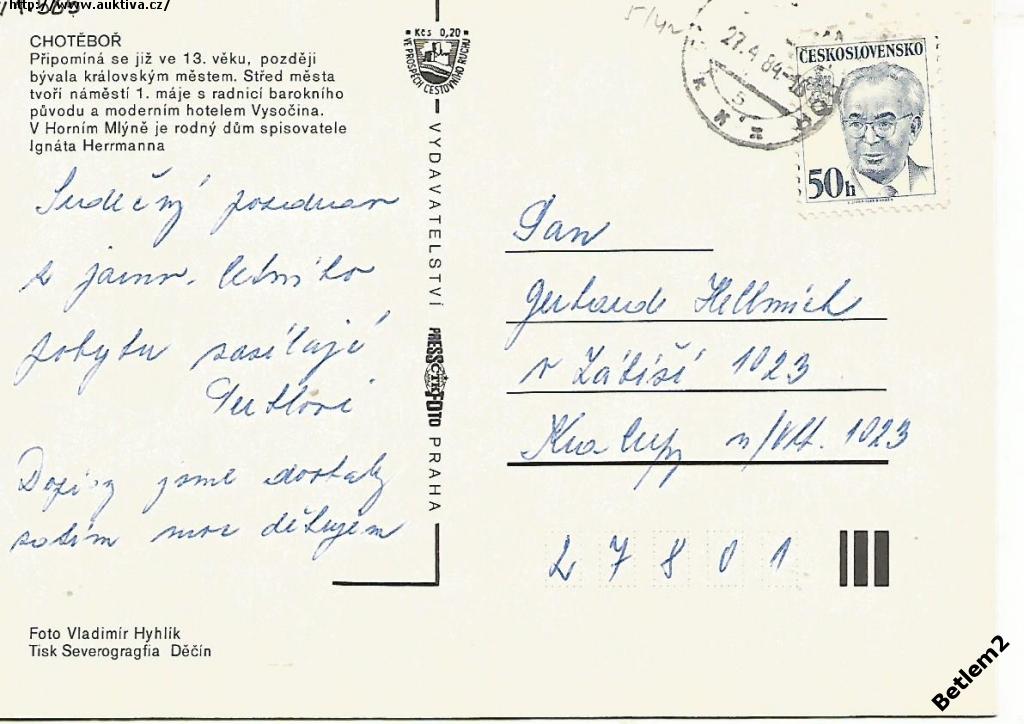 http://www.auktiva.cz/
CHOTĚBOŘ
Připomíná se již ve 13. věku, později
bývala královským městem. Střed města
tvoří náměstí 1. máje s radnicí barokního
původu a moderním hotelem Vysočina.
V Horním Mlýně je rodný dům spisovatele
Ignáta Herrmanna
Kčs 0,20
VE PROSPĚCH CESTOVNÍHO RUCHU
27.4.84
5
ČESKOSLOVENSKO
50h
Srdečný pozdrav
z jarno. letního
pobytu zasílají
Dopisy jsme dostaly
zatím moc děkujem
VYDAVATELSTVÍ PRESSFOTO PRAHA
ČTK
Pan
Gerhard Hellmich
v Zátiší 1023
Kralupy n/Vlt. 1023
27801
Foto Vladimír Hyhlík
Tisk Severogragfia Děčín
Betlem2